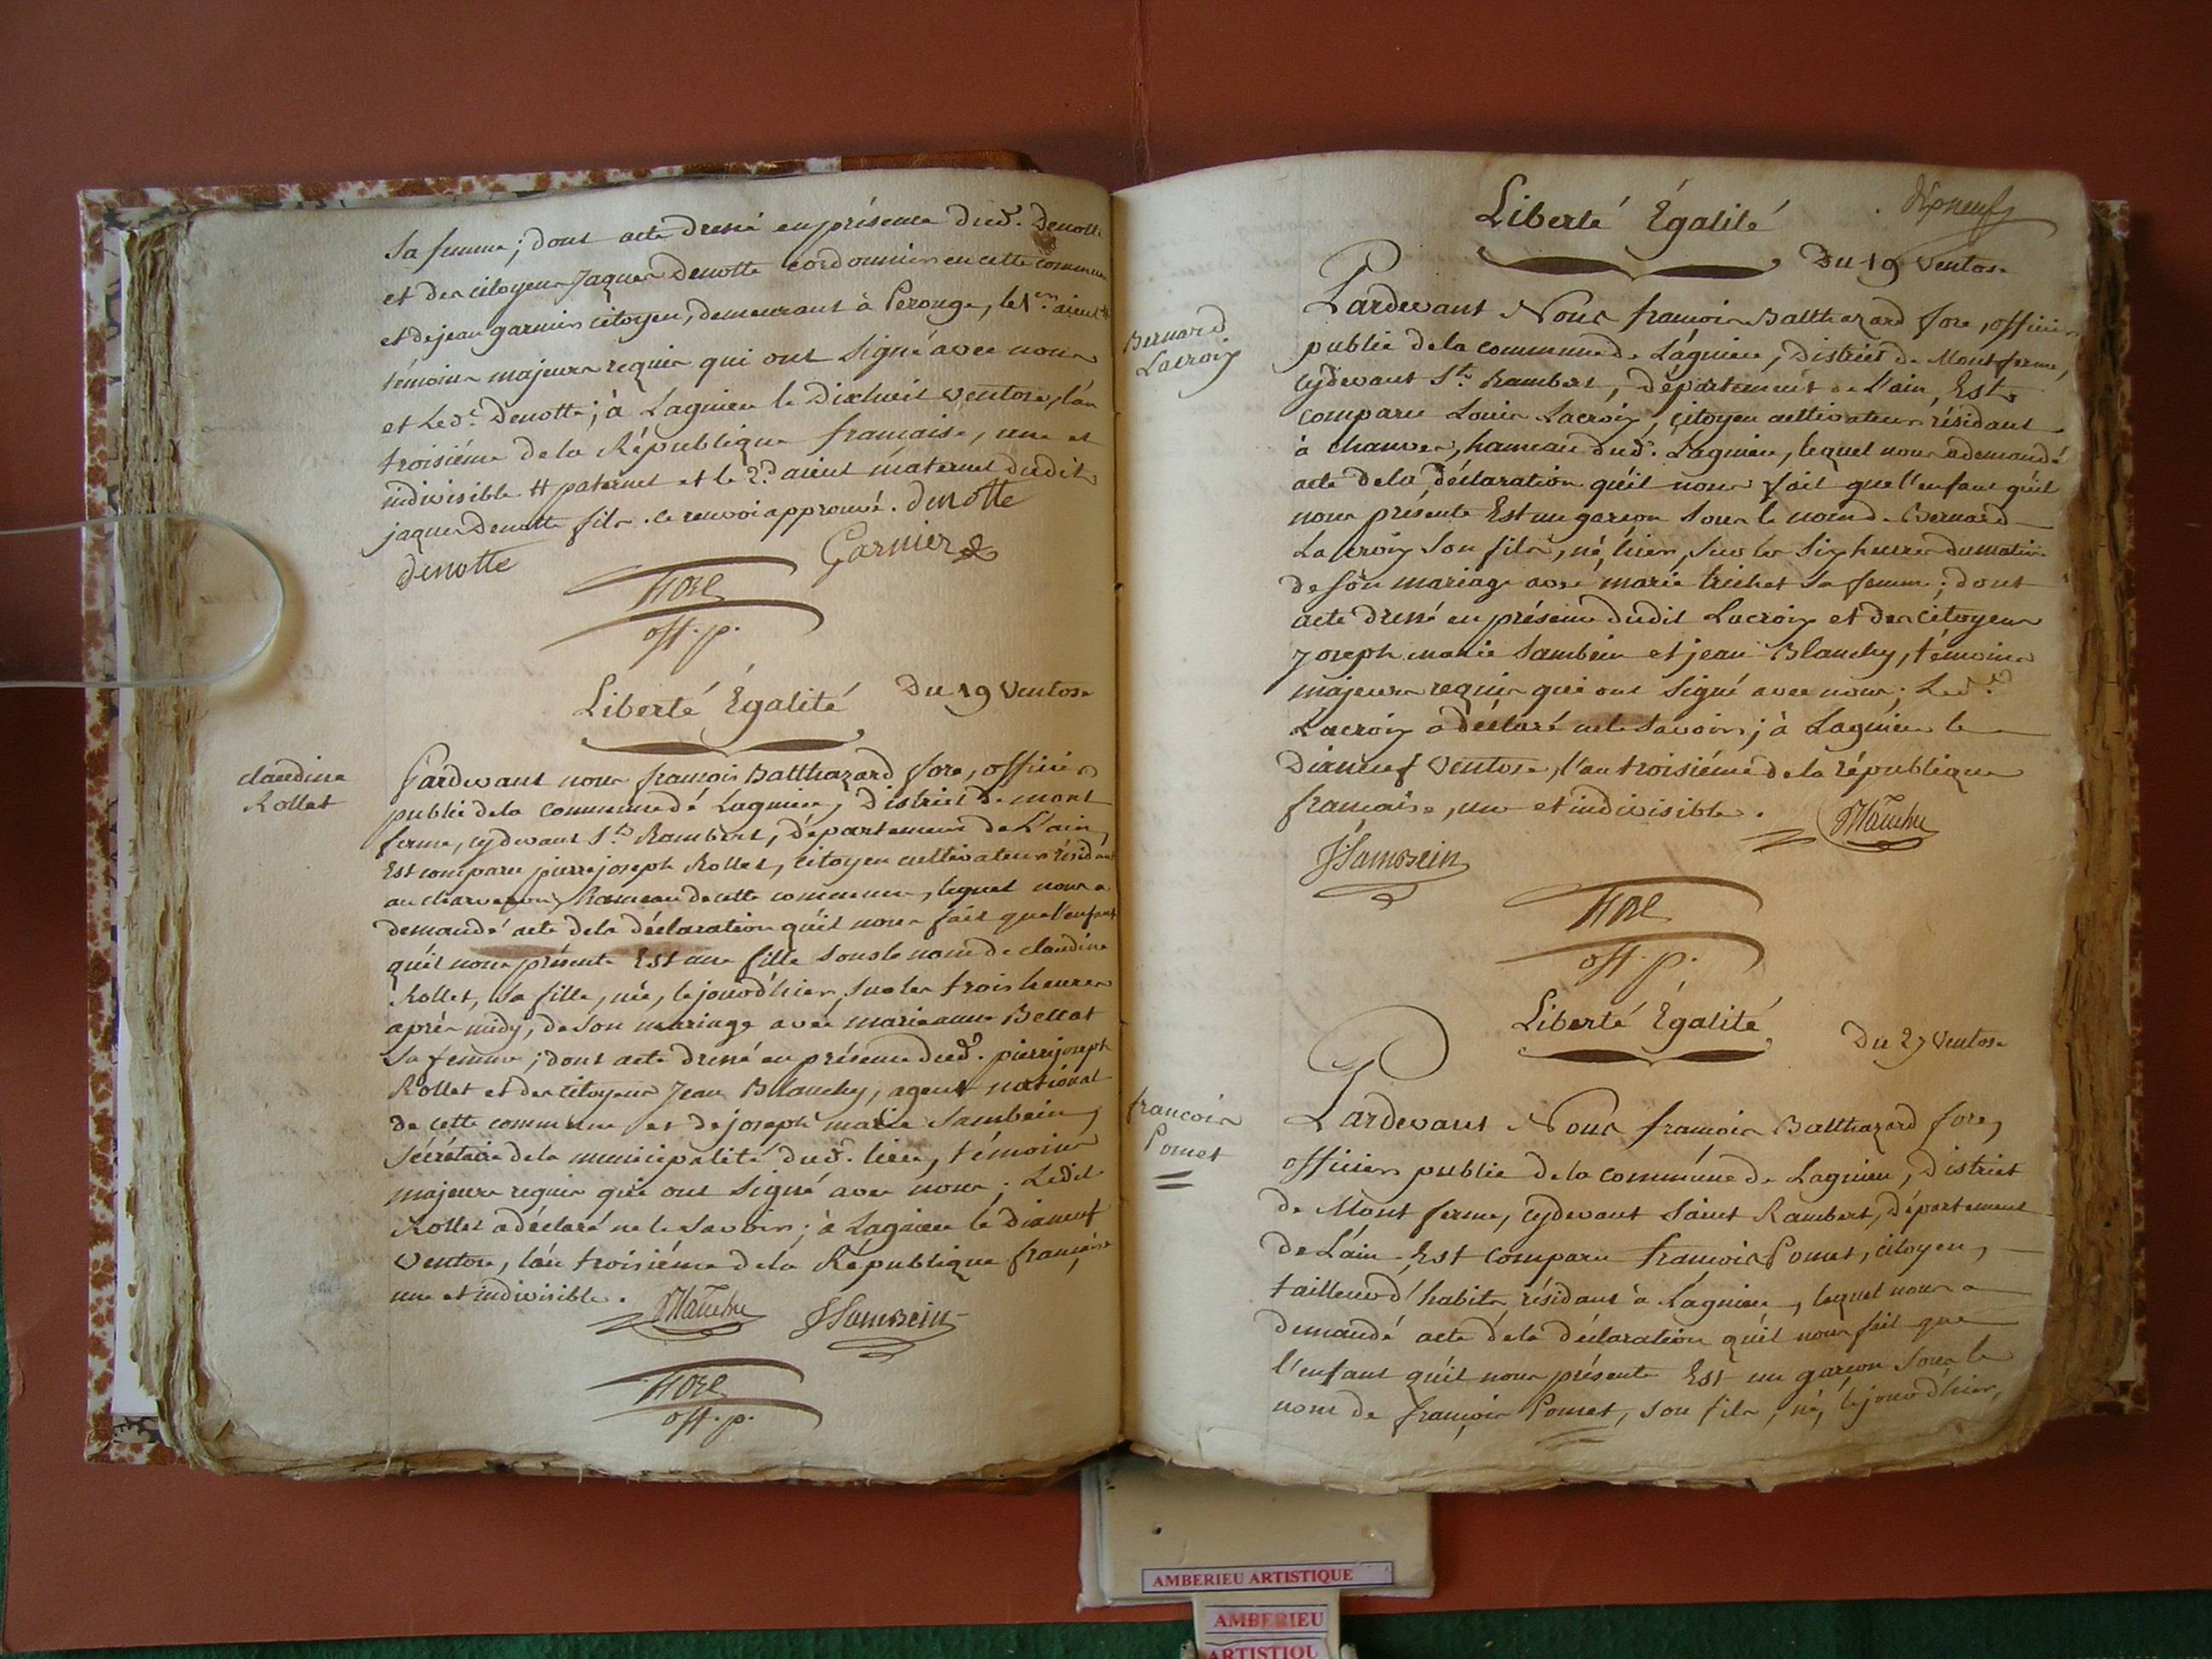 Sa femme; dont acte dressé en présence dud. Denotte
et des citoyens Jaques Denotte cordonnier en cette commune
et de jean garnier citoyen, demeurant à Perouge, le 1er aieul #
témoins majeurs requis qui ont Signé avec nous
et Led. Denotte; à Lagnieu le Dixhuit ventose, l'an
troisiéme de la République francaise, une et
indivisible # paternel et le 2d aieul maternel dudit
jaques Denotte fils. ce renvoi approuvé. denotte
denotte Garnier
fore
off. p.
Liberté Égalité Du 19 Ventose
claudine
Rollet
Pardevant nous francois Balthazard fore, officier
public de la commune de Lagnieu, District de mont
ferme, cydevant St. Rambert, département de L'ain,
Est comparu pierre joseph Rollet, citoyen cultivateur résidant
au hameau de cette commune, lequel nous a
demandé acte de la déclaration qu'il nous fait que l'enfant
qu'il nous présente Est une fille sous le nom de claudine
Rollet, sa fille, née, le jour d'hier, sur les trois heures
après midy, de son mariage avec marieanne Bellat
sa femme; dont acte dressé en présence dud. pierre joseph
Rollet et des citoyens Jean Blanchy, agent national
de cette commune et de joseph marie Sambein,
Sécrétaire de la municipalité dud. lieu, témoins
majeurs requis qui ont Signé avec nous. Ledit
Rollet a déclaré ne le Savoir; à Lagnieu le Dixneuf
ventose, l'an troisiéme de la République francaise
une et indivisible.
JSambein
fore
off. p.
dixneuf
Liberté Égalité
Du 19 Ventose
Bernard
Lacroix
Pardevant Nous francois Balthazard fore, officier
public de la commune de Lagnieu, District de Montferme,
cydevant St. Rambert, Département de L'ain, Est
comparu Louis Lacroix, citoyen cultivateur résidant
à Chanves, hameau dud. Lagnieu, lequel nous a demandé
acte de la déclaration qu'il nous fait que l'enfant qu'il
nous présente Est un garcon sous le nom de Bernard
Lacroix Son fils, né, hier, sur les Six heures du matin
de son mariage avec marie trichet sa femme; dont
acte dressé en présence dudit Lacroix et des citoyens
Joseph marie Sambein et jean Blanchy, témoins
majeurs requis qui ont Signé avec nous; Led.
Lacroix a déclaré ne le Savoir; à Lagnieu le
Dixneuf ventose, l'an troisiéme de la république
francaise, une et indivisible.
JSambein
fore
off. p.
Liberté Égalité
Du 27 Ventose
francois
Pomet
Pardevant Nous francois Balthazard fore,
officier public de la commune de Lagnieu, District
de Mont ferme, cydevant Saint Rambert, département
de L'ain Est comparu francois Pomet, citoyen,
tailleur d'habits, résidant à Lagnieu, lequel nous a
demandé acte de la déclaration qu'il nous fait que
l'enfant qu'il nous présente Est un garcon sous le
nom de francois Pomet, son fils, né, le jour d'hier,
AMBERIEU ARTISTIQUE
AMBERIEU